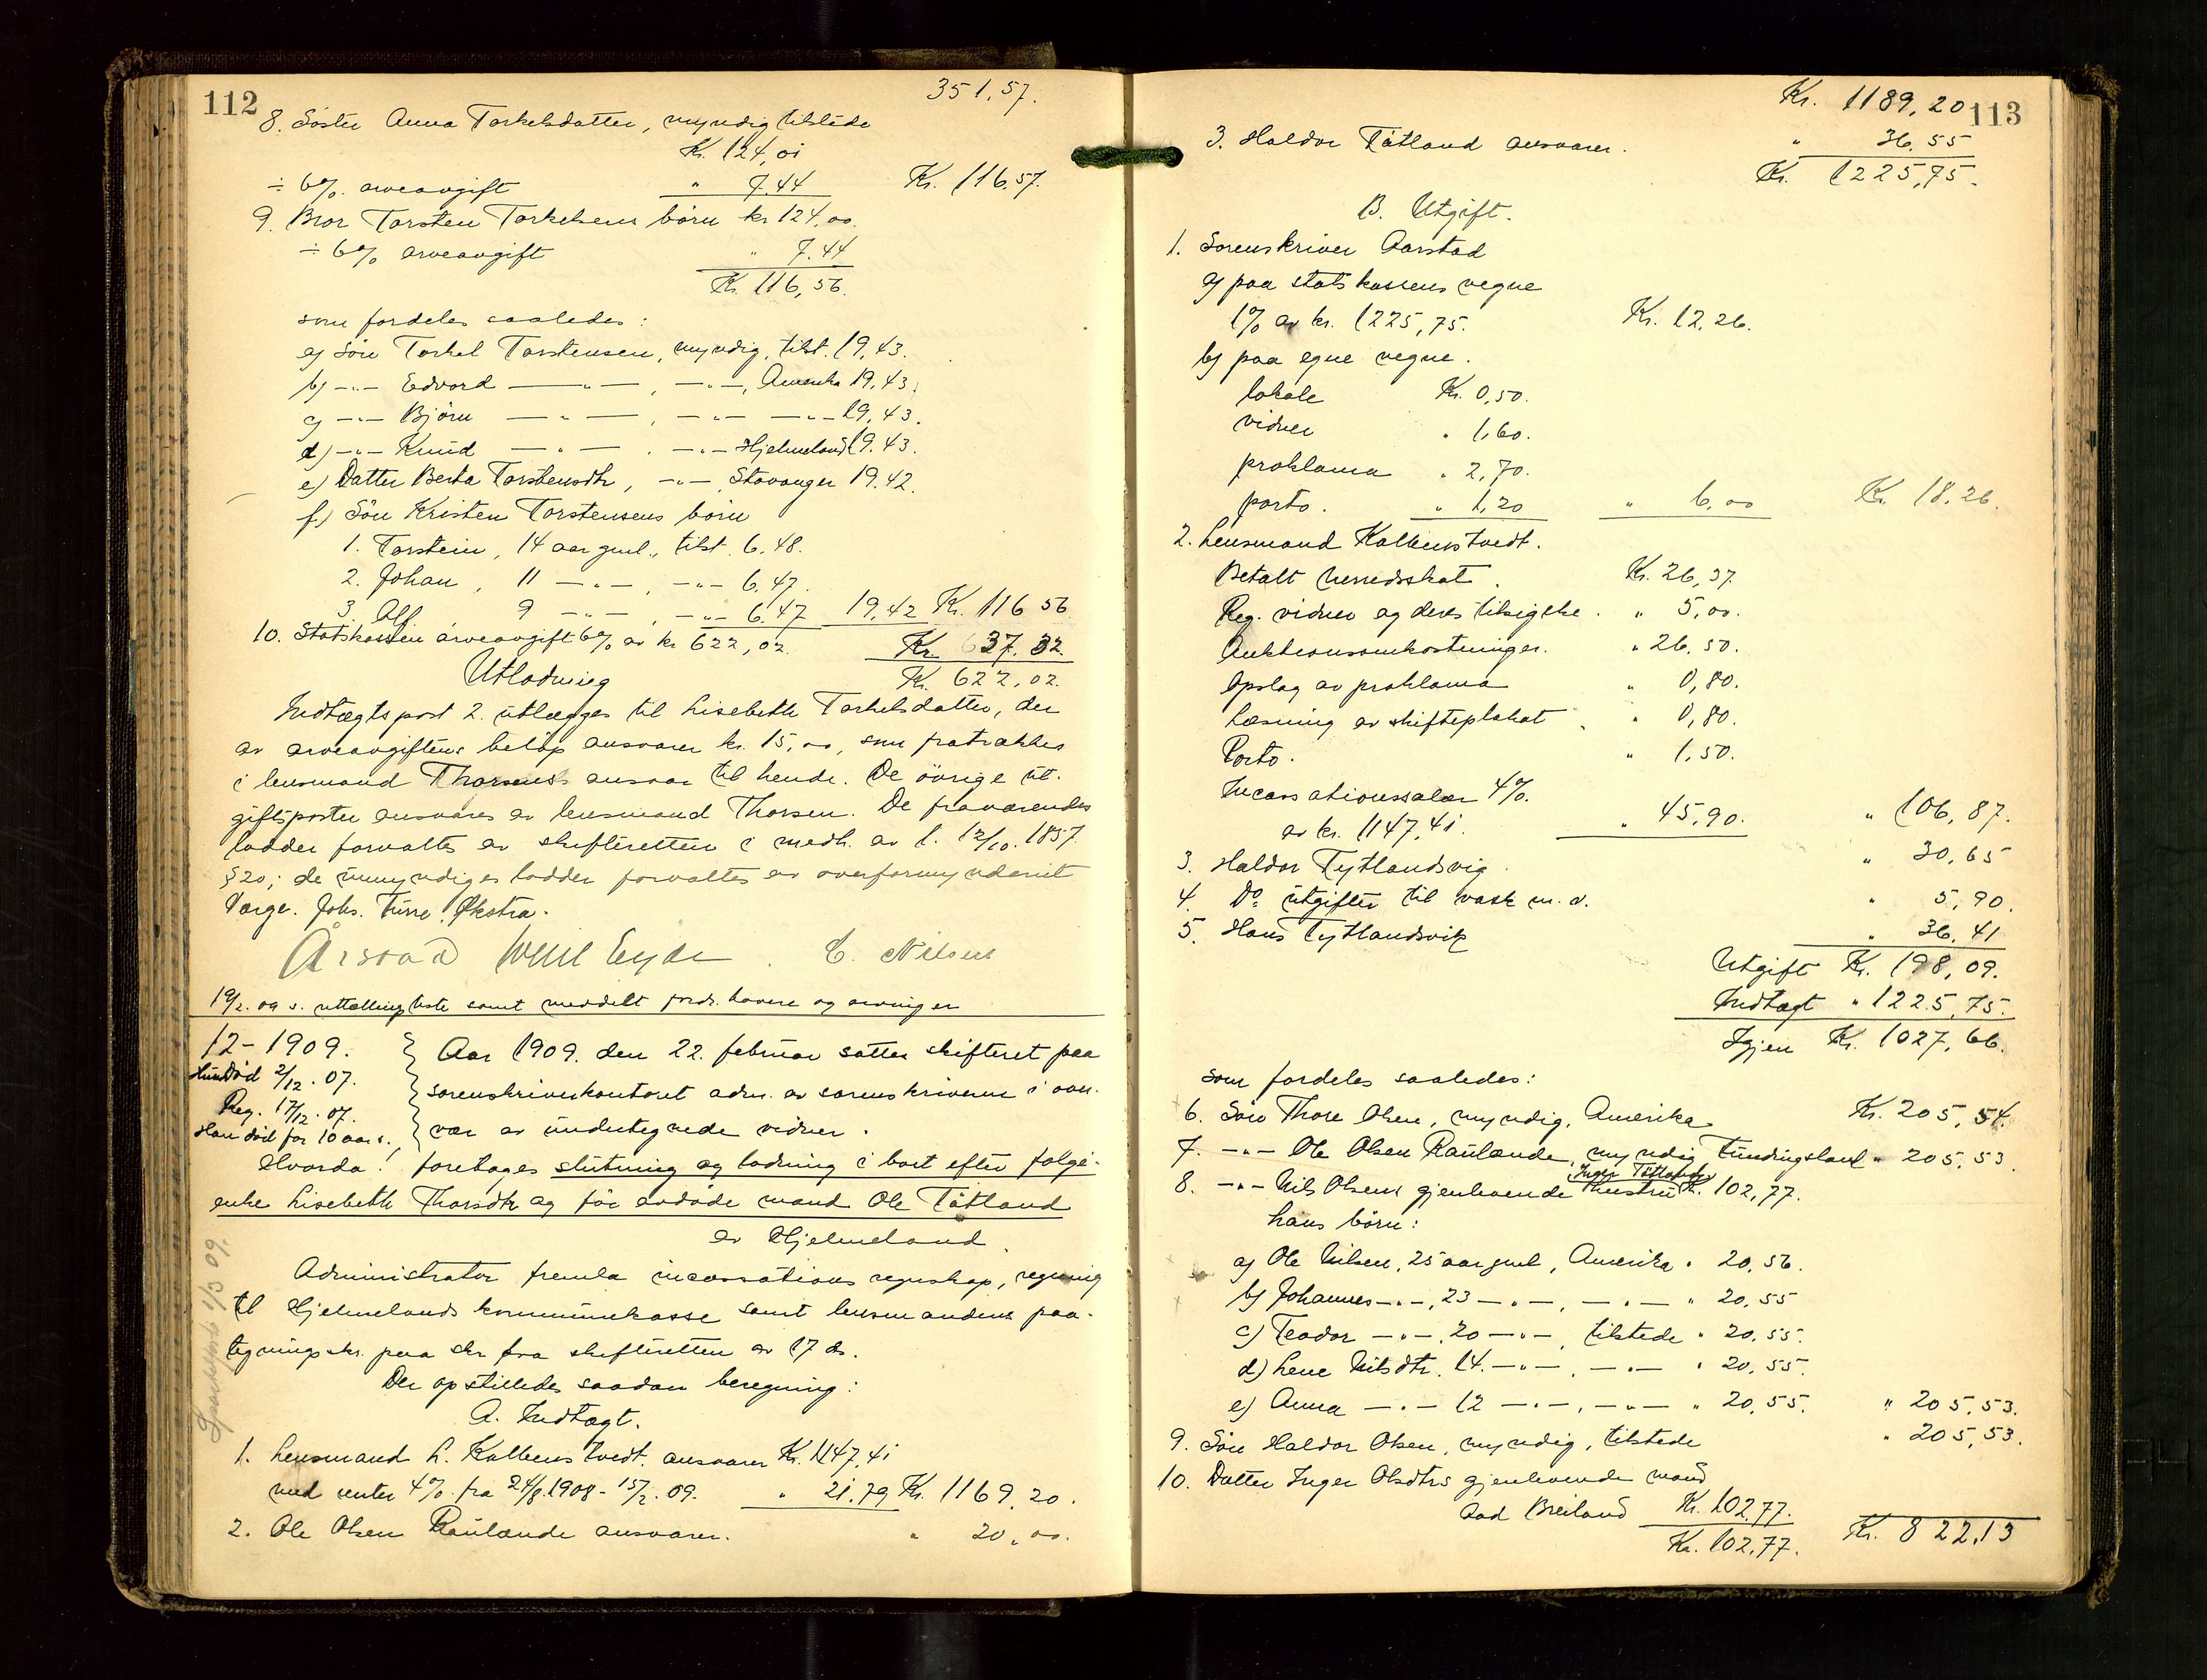 112
351,57.
8. Søster Anna Torkelsdatter, myndig tilstede
Kr. 124,01
÷ 6% arveavgift " 7.44 Kr. 116.57.
9. Bror Torsten Torkelsens børn kr 124,00.
÷ 6% arveavgift " 7.44
Kr. 116,56.
som fordeles saaledes:
a) Søn Torkel Torstensen, myndig, tilst. 19,43.
b) -"- Edvard —"—, —"—, Amerika 19,43.
c) -"- Bjørn —"—, —"— —"— 19,43.
d) -"- Knud —"—, —"— Hjelmeland 19.43.
e) Datter Berta Torstensdtr, —"—, Stavanger 19.42.
f.) Søn Kristen Torstensens børn
1. Torstein, 14 aar gml., tilst. 6.48.
2. Johan, 11 —"—, —"— 6,47.
3. Alf 9 —"—, —"— 6.47 19,42 Kr. 116 56
10. Statskassen arveavgift 6% av kr 622,02. Kr. 37.32.
Utlodning Kr. 622,02.
Indtægtspost 2. utlægges til Lisebeth Torkelsdatter, der
av arveavgiftens beløp ansvarer kr. 15,00, som fratrækkes
i lensmand Thorsens ansvar til hende. De øvrige ut-
giftsposter ansvares av lensmand Thorsen. De fraværendes
lodder forvaltes av skifteretten i medh. av l. 12/10.1857
§20; de umyndiges lodder forvaltes av overformynderiet
Værge. Johs. Økstra.
Årstad C. Nilsen
19/2. 09 s. uttællingsliste samt meddelt fordr.havere og arvinger
12-1909.
Hun død 2/12.07.
Reg. 17/12.07.
Han død for 10 aar s.
Aar 1909. den 22. februar sattes skifteret paa
sorenskriverkontoret adm. av sorenskriveren i over-
vær av undertegnede vidner.
Hvorda! foretages slutning og lodning i boet efter følge-
enke Lisebeth Thorsdtr og før avdøde mand Ole Tøtland
av Hjelmeland.
Administrator fremla incassations regnskap, regning
til Hjelmelands kommunekasse samt lensmandens paa-
tegningskr. paa skr fra skifteretten av 17 ds.
Der opstilledes saadan beregning:
A. Indtægt.
1. Lensmand L. Kolbenstvedt ansvarer Kr. 1147,41
med renter 4% fra 24/8.1908 - 15/2.09. " 21.79 Kr. 1169,20.
2. Ole Olsen Raulænde ansvarer. " 20,00.
1/3 09.
113
Kr. 1189,20
3. Haldor Tøtland ansvarer. " 36.55
Kr. 1225,75.
B. Utgift.
1. Sorenskriver Aarstad
a) paa statskassens vegne
1% av kr. 1225,75. Kr. 12,26.
b) paa egne vegne.
lokale Kr. 0,50.
vidner " 1,60.
proklama " 2,70.
porto. " 1,20 " 6,00 Kr. 18,26.
2. Lensmand Kolbenstvedt.
Betalt herredsskat. Kr. 26,37
Reg. vidner og deres tilsigelse. " 5,00.
Auktionsomkostninger. " 26.50.
Opslag av proklama " 0,80.
Læsning av skifteplakat. " 0,80.
Porto. " 1,50.
Incassationssalær 4%
av kr. 1147,41. " 45,90. " 106,87.
3. Haldor Tytlandsvig. " 30,65
4. Do utgifter til vask m.v. " 5,90.
5. Hans Tytlandsvik " 36.41
Utgift Kr. 198,09.
Indtægt " 1225,75.
Igjen Kr. 1027,66.
som fordeles saaledes:
6. Søn Thore Olsen, myndig, Amerika. Kr. 205,54.
7. -"- Ole Olsen Raulænde, myndig Fundingsland " 205,53.
Inger Tøtland
8. -"- Nils Olsens gjenlevende hustru K. 102,77.
hans børn:
a) Ole Nilsen, 25 aar gml, Amerika " 20,56.
b) Johannes —"—, 23 —"—, —"— " 20,55
c) Teodor —"—, 20 —"—, tilstede " 20,55.
d) Lene Nilsdtr. 14. —"—, —"— " 20,55.
e) Anna —"— 12 —"—, —"— " 20,55. " 205,53.
9. Søn Haldor Olsen, myndig, tilstede " 205,53.
10. Datter Inger Olsdtrs gjenlevende mand
Aad Breiland Kr. 102,77.
Kr. 102,77. Kr. 822,13